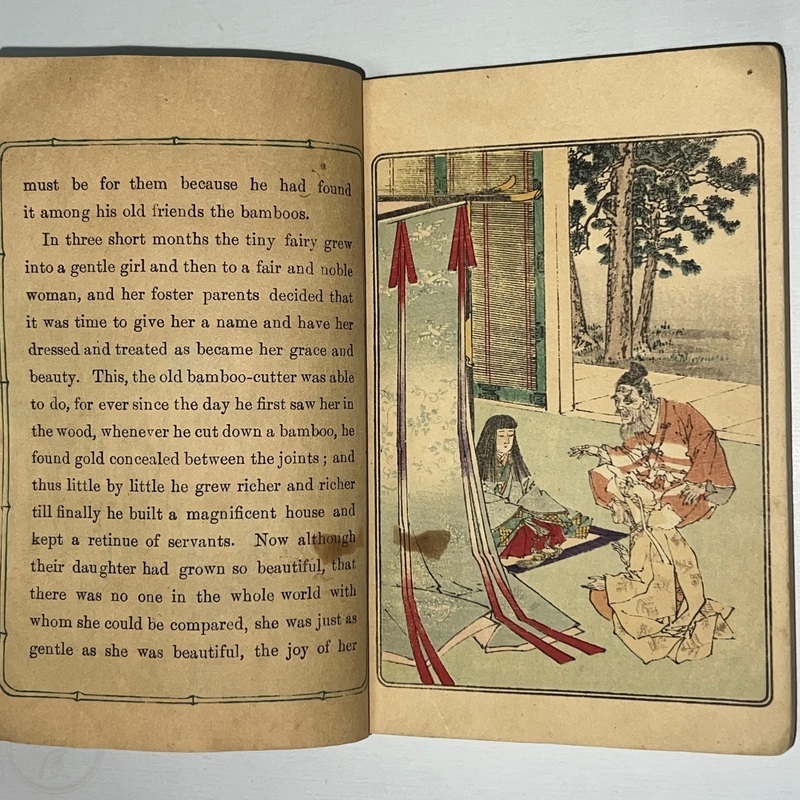 must be for them because he had found
it among his old friends the bamboos.
In three short months the tiny fairy grew
into a gentle girl and then to a fair and noble
woman, and her foster parents decided that
it was time to give her a name and have her
dressed and treated as became her grace and
beauty. This, the old bamboo-cutter was able
to do, for ever since the day he first saw her in
the wood, whenever he cut down a bamboo, he
found gold concealed between the joints; and
thus little by little he grew richer and richer
till finally he built a magnificent house and
kept a retinue of servants. Now although
their daughter had grown so beautiful, that
there was no one in the whole world with
whom she could be compared, she was just as
gentle as she was beautiful, the joy of her